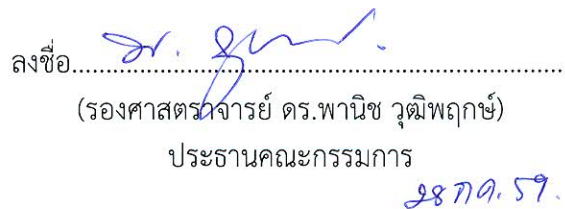 ลงชื่อ
(รองศาสตราจารย์ ดร.พานิช วุฒิพฤกษ์)
ประธานคณะกรรมการ
28 ก.ค. 59.